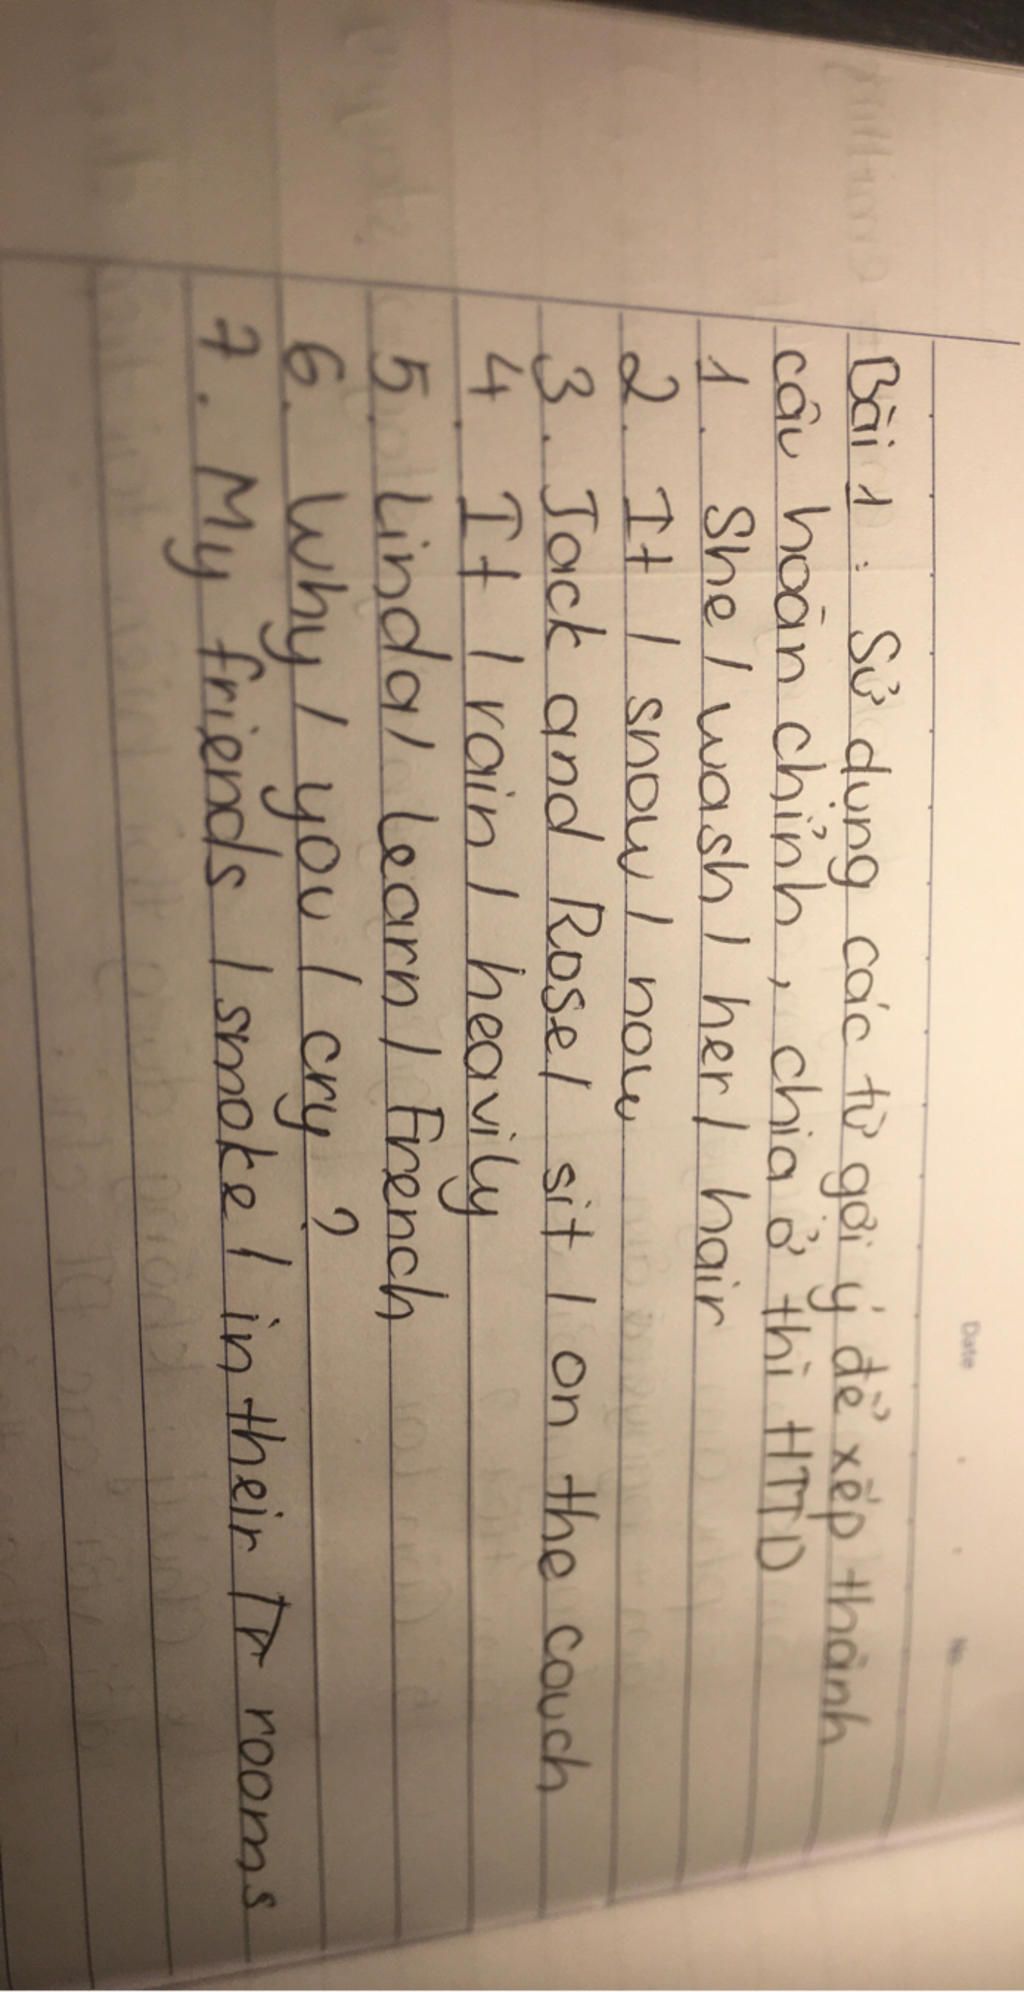 Date
No.
Bài 1 : Sử dụng các từ gợi ý để xếp thành
câu hoàn chỉnh, chia ở thì HTTD
1. She / wash / her / hair
2. It / snow / now
3. Jack and Rose / sit / on the couch
4. It / rain / heavily
5. Linda / learn / French
6. Why / you / cry ?
7. My friends / smoke / in their rooms